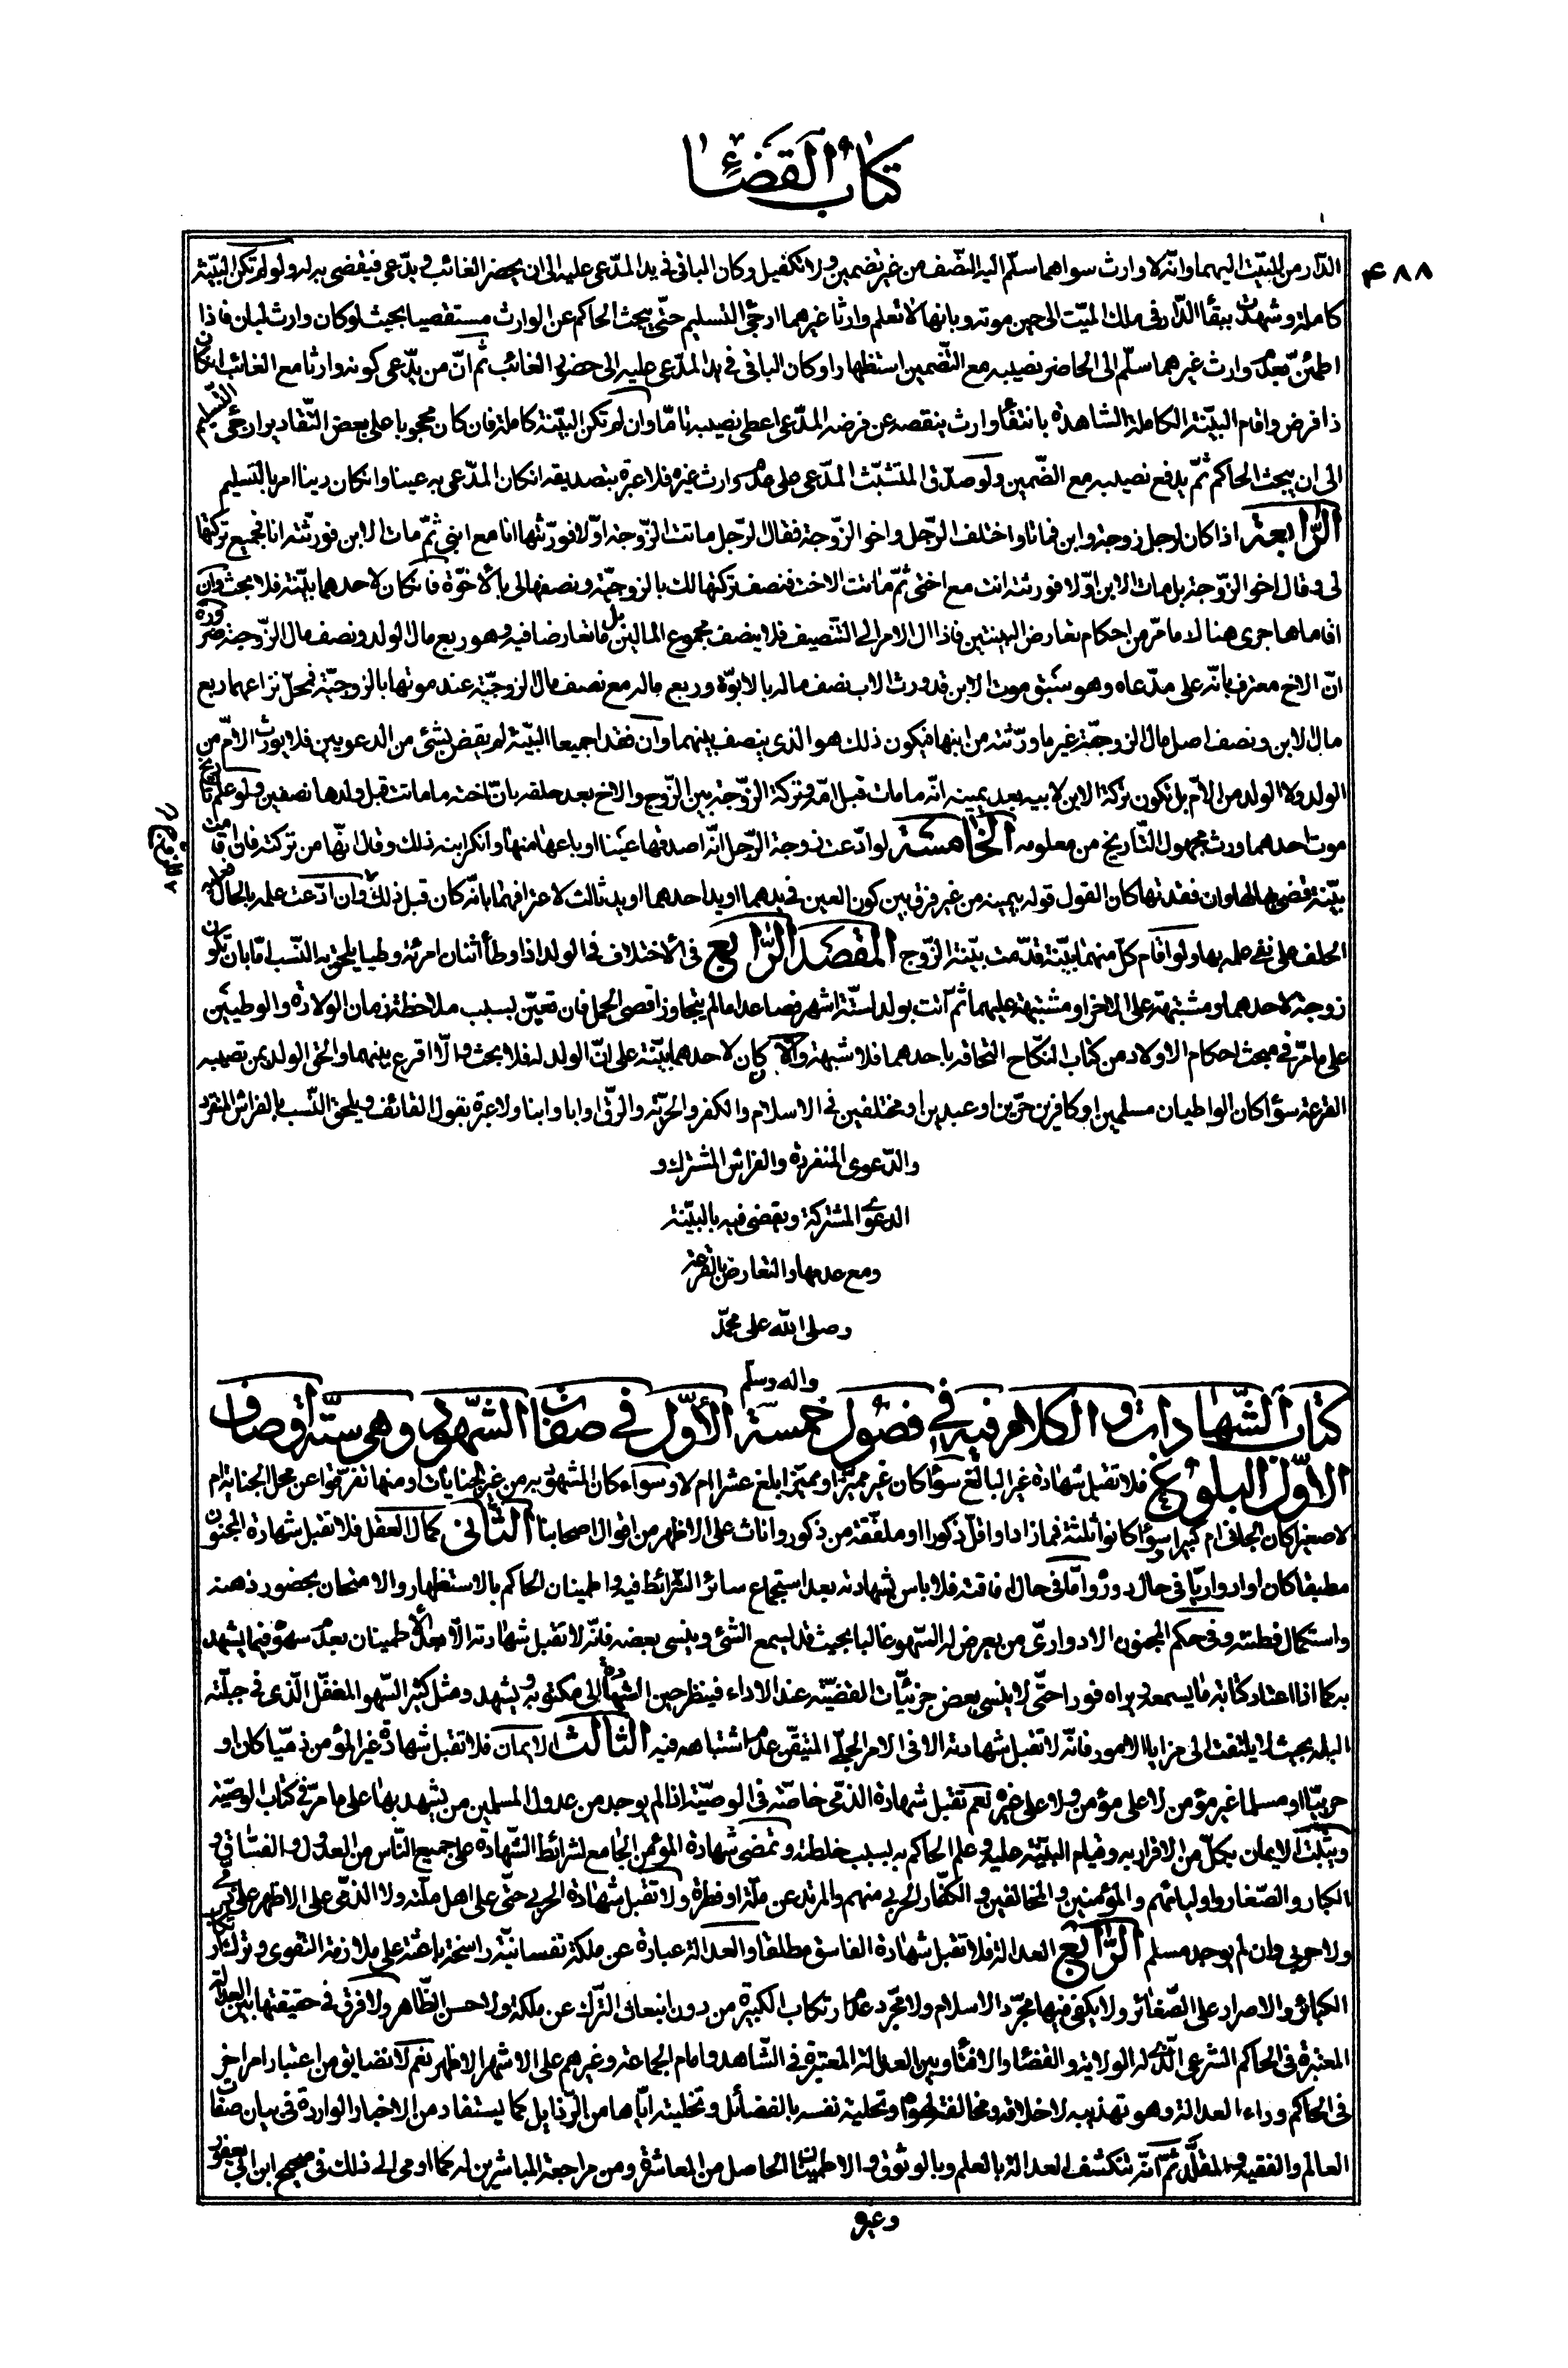 كتاب القضاء
۴۸۸
الدّار من الميّت اليهما وانّه لا وارث سواهما سلّم اليه النّصف من غير تضمين ولا تكفيل وكان الباقى فى يد المدّعى عليه الى ان يحضر الغائب ويدّعى فيقضى به له ولو لم تكن البيّنة
كاملة وشهدت ببقاء الدّار فى ملك الميّت الى حين موته وبانها لا تعلم وارثا غيرهما ارجئ التسليم حتّى يبحث الحاكم عن الوارث مستقصيا بحيث لو كان وارث لبان فاذا
اطمئنّ بعدم وارث غيرهما سلّم الى الحاضر نصيبه مع التّضمين استظهارا وكان الباقى فى يد المدّعى عليه الى حضور الغائب ثم انّ من يدّعى كونه وارثا مع الغائب ان كان
ذا فرض واقام البيّنة الكاملة الشاهدة بانتفاء وارث ينقصه عن فرضه المدّعى اعطى نصيبه تامّا وان لم تكن البيّنة كاملة فان كان محجوبا على بعض التّقادير ارجئ التسليم
الى ان يبحث الحاكم ثمّ يدفع نصيبه مع الضّمين ولو صدّق المتشبّث المدّعى على عدم وارث غيره فلا عبرة بتصديقه ان كان المدّعى به عينا وان كان دينا امر بالتسليم
الرّابعة اذا كان لرجل زوجة وابن فماتا واختلف الرّجل واخو الزّوجة فقال الرّجل ماتت الزّوجة اوّلا فورّثتها انا مع ابنى ثمّ مات الابن فورّثته انا فجميع تركتها
لى وقال اخو الزّوجة بل مات الابن اوّلا فورثته انت مع اختى ثمّ ماتت الاخت فنصف تركتها لك بالزوجيّة ونصفها لى بالأخوّة فان كان لاحدهما بيّنة فلا بحث وان
اقاماها جرى هنا لا ما مرّ من احكام تعارض البينتين فاذا ال الامر الى التّنصيف فلا ينصف مجموع المالين بل ما تعارضا فيه وهو ربع مال الولد ونصف مال الزّوجة ضرورة
انّ الاخ معترف بانّه على مدّعاه وهو سبق موت الابن قد ورث الاب نصف ماله بالابوّة وربع ماله مع نصف مال الزوجيّة عند موتها بالزوجيّة فمحلّ نزاعهما ربع
مال الابن ونصف اصل مال الزوجيّة غير ما ورّثته من ابنها فيكون ذلك هو الذى ينصف بينهما وان فقدا جميعا البيّنة لم يقض بشئ من الدعويين فلا يورث الامّ من
الولد ولا الولد من الامّ بل تكون تركة الابن لابيه بعد يمينه انّه ما مات قبل امّه وتركة الزّوجة بين الزّوج والاخ بعد حلفه بانّ اخته ما ماتت قبل ولدها نصفين ولو علم تاريخ
موت احدهما ورث مجهول التّاريخ من معلومه الخامسة لو ادّعت زوجة الرّجل انّه اصدقها عينا او باعها منها وانكر ابنه ذلك وقال انّها من تركته فان اقامت
بيّنة قضى بها لها وان فقدتها كان القول قوله بيمينه من غير فرق بين كون العين فى يدهما او يد احدهما او يد ثالث لاعترافهما بانّه كان قبل ذلك وان ادّعت علمه بالحال فعليه
الحلف على نفى علمه بها ولو اقام كلّ منهما بيّنة قدّمت بيّنة الزّوج المقصد الرّابع فى الأختلاف فى الولد اذا وطأ اثنان امرئة وطيا يلحق به النّسب امّا بان تكون
زوجة لاحدهما ومشتبهة على الاخر او مشتبهة عليهما ثم أتت بولد لستّة اشهر فصاعدا ما لم يتجاوز اقصى الحمل فان تعيّن بسبب ملاحظة زمان الولادة والوطيين
على ما مرّ فى مبحث احكام الاولاد من كتاب النكاح التحاقه باحدهما فلا شبهة والّا فان كان لاحدهما بيّنة على انّ الولد له فلا بحث والّا اقرع بينهما والحق الولد بمن تصيبه
القرعة سواء كان الواطيان مسلمين او كافرين حرّين او عبدين او مختلفين فى الاسلام والكفر والحريّة والرقّ او ابا وابنا ولا عبرة بقول القائف ويلحق النّسب بالفراش المنفرد
والدّعوى المنفردة والفراش المشترك و
الدعوى المشتركة ويقضى فيه بالبيّنة
ومع عدمها والتعارض بالقرعة
وصلى الله على محمّد
واله وسلم
كتاب الشّهادات والكلام فيه فى فصول خمسة الأوّل فى صفات الشّهود وهى ستّة اوصاف
الاوّل البلوغ فلا تقبل شهادة غير البالغ سواء كان غير مميّز او مميّزا بلغ عشرا ام لا وسواء كان المشهود به من غير الجنايات او منها تفرّقوا عن محل الجناية ام
لا صغيرا كان الجانى ام كبيرا وسواء كانوا ثلثة فما زاد او اقلّ ذكورا او ملفّقة من ذكور واناث على الاظهر من اقوال اصحابنا الثّانى كمال العقل فلا تقبل شهادة المجنون
مطبقا كان او ادواريّا فى حال دوره وامّا فى حال افاقته فلا باس بشهادته بعد استجماع سائر الشّرائط فيه واطمينان الحاكم بالاستظهار والامتحان بحضور ذهنه
واستكمال فطنته وفى حكم المجنون الادوارىّ من يعرض له السّهو غالبا بحيث قد يسمع الشئ وينسى بعضه فانّه لا تقبل شهادته الّا بعد الأطمينان بعدم سهوه فيما يشهد
به كما اذا اعتاد كتابة ما يسمعه او يراه فورا حتّى لا ينسى بعض جزئيّات القضيّة عند الاداء فينظر حين الشهادة الى مكتوبه ويشهد ومثل كثير السّهو المغفّل الّذى فى جبلّته
البله بحيث لا يلتفت الى مزايا الامور فانّه لا تقبل شهادته الا فى الامر الجلىّ المتيقّن عدم اشتباهه فيه الثّالث الايمان فلا تقبل شهادة غير المؤمن ذمّيا كان او
حربيّا او مسلما غير مؤمن لا على مؤمن ولا على غيره نعم تقبل شهادة الذمّى خاصّة فى الوصيّة اذا لم يوجد من عدول المسلمين من يشهد بها على ما مرّ فى كتاب الوصيّة
ويثبت الايمان بكلّ من الاقرار به وقيام البيّنة عليه وعلم الحاكم به بسبب خلطته وتمضى شهادة المؤمن الجامع لشرائط الشّهادة على جميع النّاس من العدول والفسّاق و
الكبار والصّغار واوليائهم والمؤمنين والمخالفين والكفّار الحربى منهم والمرتد عن ملّة او فطرة ولا تقبل شهادة الحربى حتّى على اهل ملّته ولا الذمّى على الاظهر على ذمّى
ولا حربى وان لم يوجد مسلم الرّابع العدالة فلا تقبل شهادة الفاسق مطلقا والعدالة عبارة عن ملكة نفسانيّة راسخة باعثة على ملازمة التقوى وترك ارتكاب
الكبائر والاصرار على الصّغائر ولا يكفى فيها مجرّد الاسلام ولا مجرّد عدم ارتكاب الكبيرة من دون انبعاث التّرك عن ملكة ولا حسن الظّاهر ولا فرق فى حقيقتها بين العدالة
المعتبرة فى الحاكم الشرعى الّذى له الولاية والقضاء والافتاء وبين العدالة المعتبرة فى الشّاهد وامام الجماعة وغيرهم على الاشهر الاظهر نعم لا نضايق من اعتبار امر اخر
فى الحاكم وراء العدالة وهو تهذيبه لاخلاقه ومخالفته لهواه وتحلية نفسه بالفضائل وتخليته ايّاها من الرّذايل كما يستفاد من الاخبار الواردة فى بيان صفات
العالم والفقيه والمقلَّد ثمّ انّه تنكشف العدالة بالعلم وبالوثوق والاطمينان الحاصل من المعاشرة ومن مراجعة المباشرين له كما اومى الى ذلك فى صحيح ابن ابى يعفور
وغيره